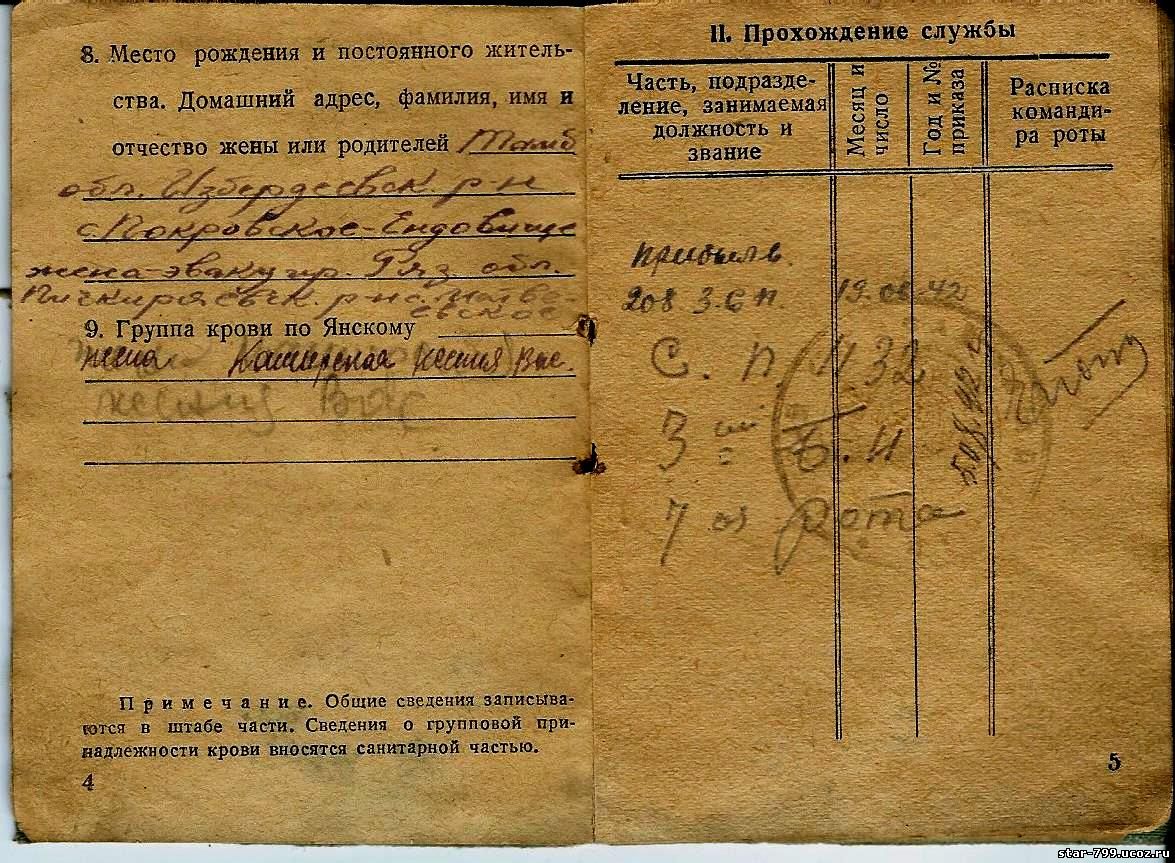 8. Место рождения и постоянного житель-
ства. Домашний адрес, фамилия, имя и
отчество жены или родителей Тамб
обл. Избердеевск. р-н
с. Покровское-Ендовище
жена-эвакуир. Ряз обл.
р-н с.
евское
9. Группа крови по Янскому
жена Каширская Вас.
Примечание. Общие сведения записыва-
ются в штабе части. Сведения о групповой при-
надлежности крови вносятся санитарной частью.
4
II. Прохождение службы
Часть, подразде-
ление, занимаемая
должность и
звание
Месяц и
число
Год и №
приказа
Расписка
команди-
ра роты
прибыл в
208 З.С П
С. П. 1132
3 ий Б.
7 ая рота
5
star-799.ucoz.ru